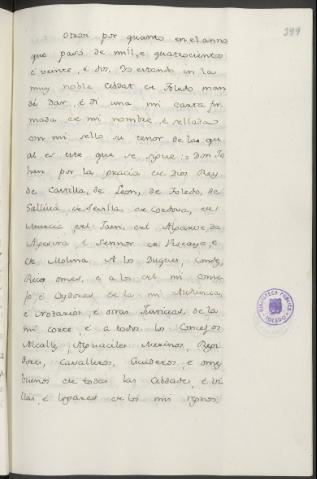 399
Otrosi por quanto en el anno
que pasó de mil, e quatrocientos
é veinte, é dos, Yo estando en la
muy noble Cibdat de Toledo man
dé dar, é di una mi carta fir
mada de mi nombre, é sellada
con mi sello su tenor de la qu
al es este que se sigue: = Don Jo
han por la gracia de Dios Rey
de Castilla, de Leon, de Toledo, de
Gallicia de Sevilla de Cordova, de
Murcia del Jaen, del Algarve, de
Algecira é Sennor de Vizcaya, e
de Molina. A los Duques, Condes,
Ricos omes, é a los del mi conse
jo, é Oydores de la mi Audiencia,
é Notarios, é otras Justicias, de la
mi corte, é a todos los Concejos
Alcalles, Alguaciles Merinos, Regi
dores, Cavalleros, Escuderos, é omes
buenos de todas las Cibdades, é vi
llas, é logares de los mis regnos
BIBLIOTECA PUBLICA
TOLEDO